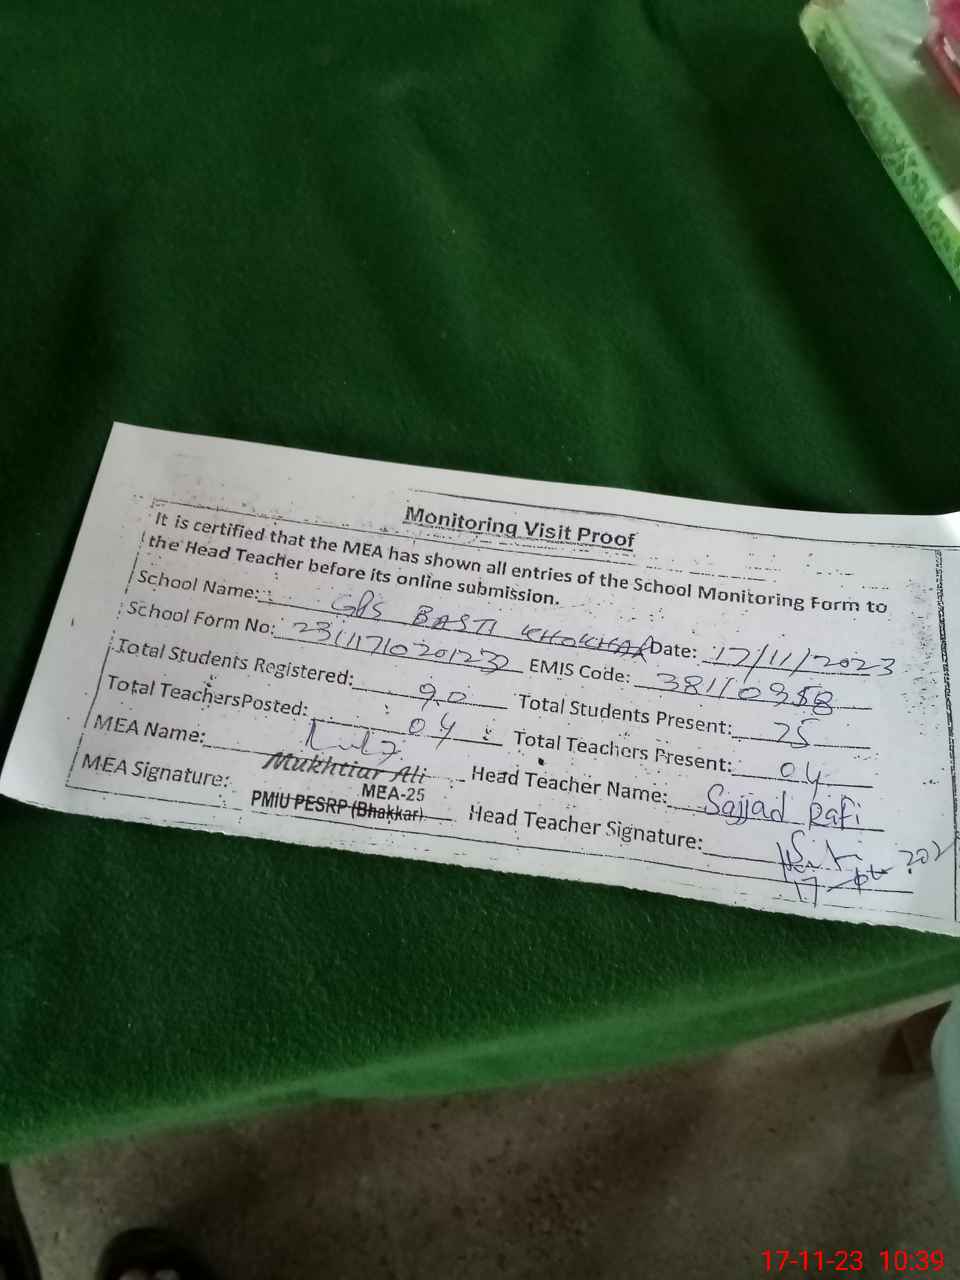 Monitoring Visit Proof
It is certified that the MEA has shown all entries of the School Monitoring Form to
the Head Teacher before its online submission.
School Name: GPS BASTI KHOKHAR Date: 17/11/2023
School Form No: 231117102012 EMIS Code: 38110958
Total Students Registered: 90 Total Students Present: 25
Total TeachersPosted: 04 Total Teachers Present: 04
MEA Name: Mukhtiar Ali Head Teacher Name: Sajjad Rafi
MEA Signature: MEA-25 Head Teacher Signature:
PMIU PESRP (Bhakkar)
17-11-23 10:39